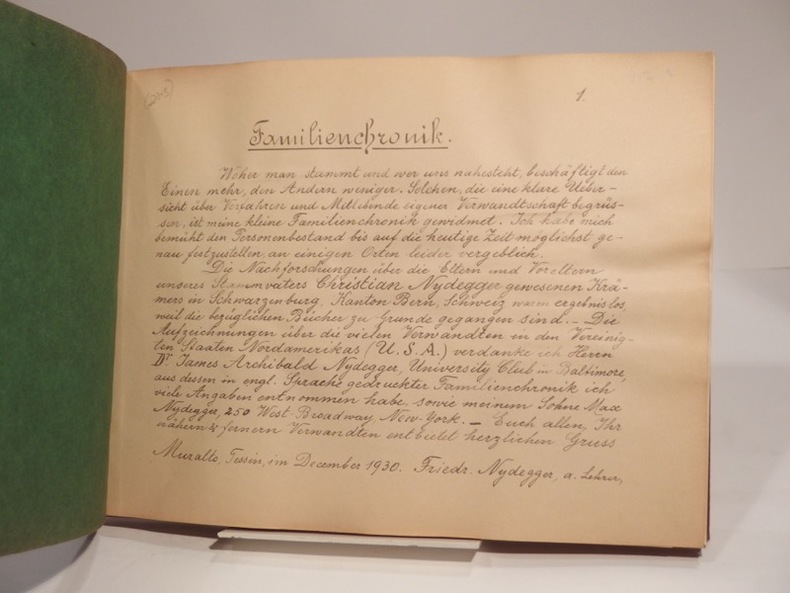 1.
Familienchronik.
Woher man stammt und wer uns nahesteht, beschäftigt den
Einen mehr, den Andern weniger. Solchen, die eine klare Ueber-
sicht über Vorfahren und Mitlebende eigener Verwandtschaft begrüs-
sen, ist meine kleine Familienchronik gewidmet. Ich habe mich
bemüht den Personenbestand bis auf die heutige Zeit möglichst ge-
nau festzustellen, an einigen Orten leider vergeblich.
Die Nachforschungen über die Eltern und Voreltern
unseres Stammvaters Christian Nydegger gewesenen Krä-
mers in Schwarzenburg, Kanton Bern, Schweiz waren ergebnislos,
weil die bezüglichen Bücher zu Grunde gegangen sind. – Die
Aufzeichnungen über die vielen Verwandten in den Vereinig-
ten Staaten Nordamerikas (U.S.A.) verdanke ich Herrn
Dr. James Archibald Nydegger, University Club in Baltimore,
aus dessen in engl. Sprache gedruckter Familienchronik ich
viele Angaben entnommen habe, sowie meinem Sohne Max
Nydegger, 250 West-Broadway, New-York. – Euch allen, Ihr
nähern & fernern Verwandten entbietet herzlichen Gruss
Muralto, Tessin, im December 1930. Friedr. Nydegger, a. Lehrer,